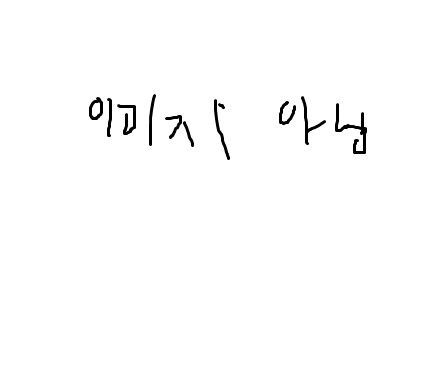 이미지 아님